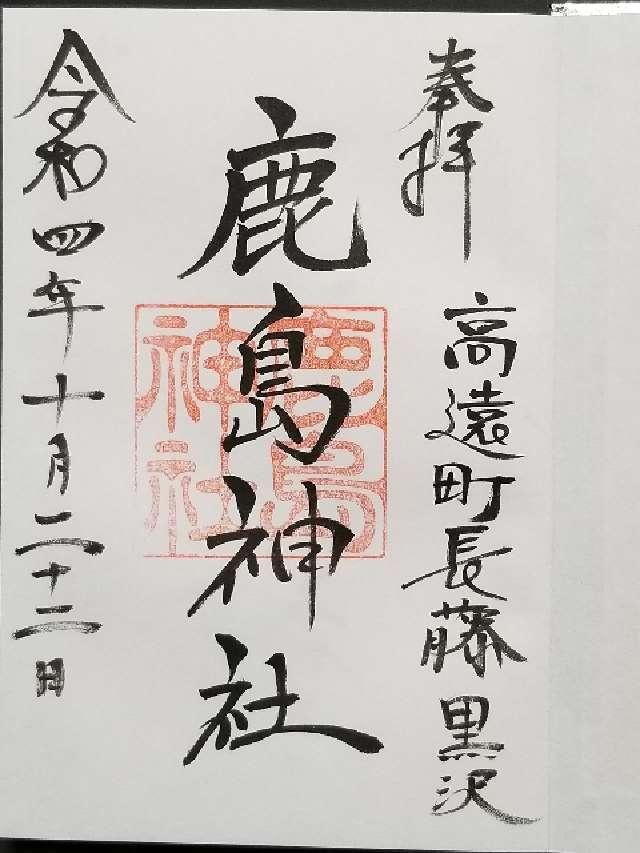 奉拝
高遠町長藤黒沢
鹿島神社
鹿島
神社
令和四年十月二十二日